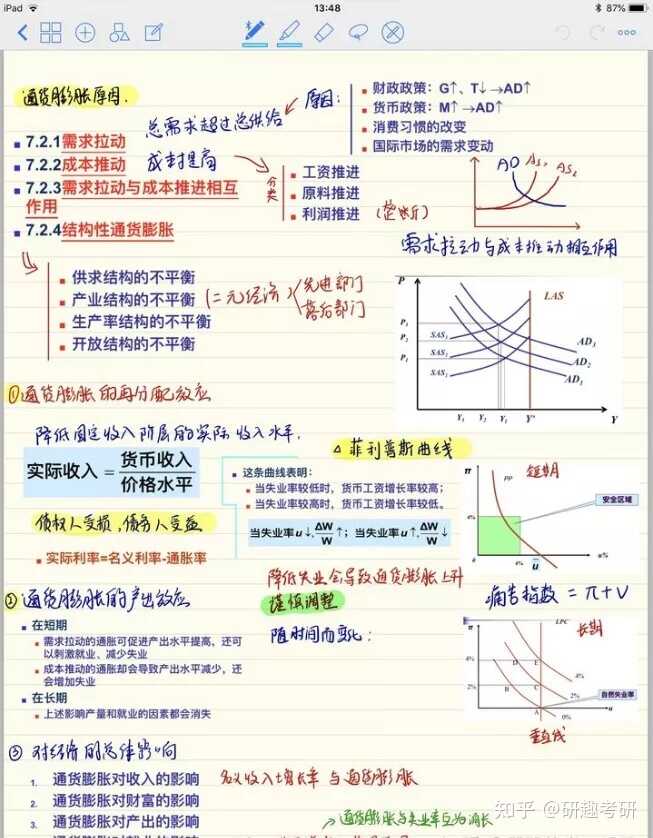 iPad
13:48
87%
通货膨胀原因.
7.2.1需求拉动
总需求超过总供给
7.2.2成本推动
成本提高
7.2.3需求拉动与成本推进相互
作用
7.2.4结构性通货膨胀
原因:
财政政策：G↑、T↓→AD↑
货币政策：M↑→AD↑
消费习惯的改变
国际市场的需求变动
分类
工资推进
原料推进
利润推进 (垄断)
AD AS₁ AS₂
需求拉动与成本推动相互作用
供求结构的不平衡
产业结构的不平衡 (二元经济) 先进部门
落后部门
生产率结构的不平衡
开放结构的不平衡
P
LAS
P₃
P₂
P₁
SAS₃
SAS₂
SAS₁
AD₃
AD₂
AD₁
Y
①通货膨胀的再分配效应
降低固定收入阶层的实际收入水平.
实际收入=货币收入
价格水平
债权人受损,债务人受益
实际利率=名义利率-通胀率
△菲利普斯曲线
这条曲线表明：
当失业率较低时，货币工资增长率较高；
当失业率较高时，货币工资增长率较低。
当失业率u↓,ΔW/W↑；当失业率u↑,ΔW/W↓
π
PP
短期
安全区域
4%
0
4%
u
u%
降低失业会导致通货膨胀上升
谨慎调整
痛苦指数 = π+V
随时间而变化:
②通货膨胀的产出效应
在短期
需求拉动的通胀可促进产出水平提高，还可
以刺激就业、减少失业
成本推动的通胀却会导致产出水平减少，还
会增加失业
在长期
上述影响产量和就业的因素都会消失
π
LPC
长期
4%
2%
D
E
B
C
A
4%
2%
0%
自然失业率
u
垂直线
③对经济的总体影响
1. 通货膨胀对收入的影响 名义收入增长率与通货膨胀
2. 通货膨胀对财富的影响
3. 通货膨胀对产出的影响
通货膨胀与失业率互为消长
知乎 @研趣考研